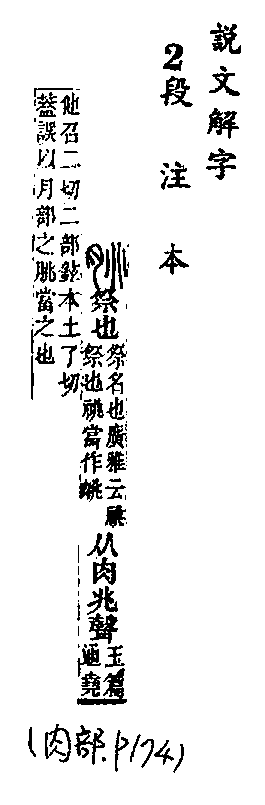 説文解字
2段 注 本
祭也
祭名也廣雅云祧
祭也祧當作朓
从肉兆聲
玉篇
通堯
他召二切二部鉉本土了切
葢誤以月部之朓當之也
(肉部.P174)